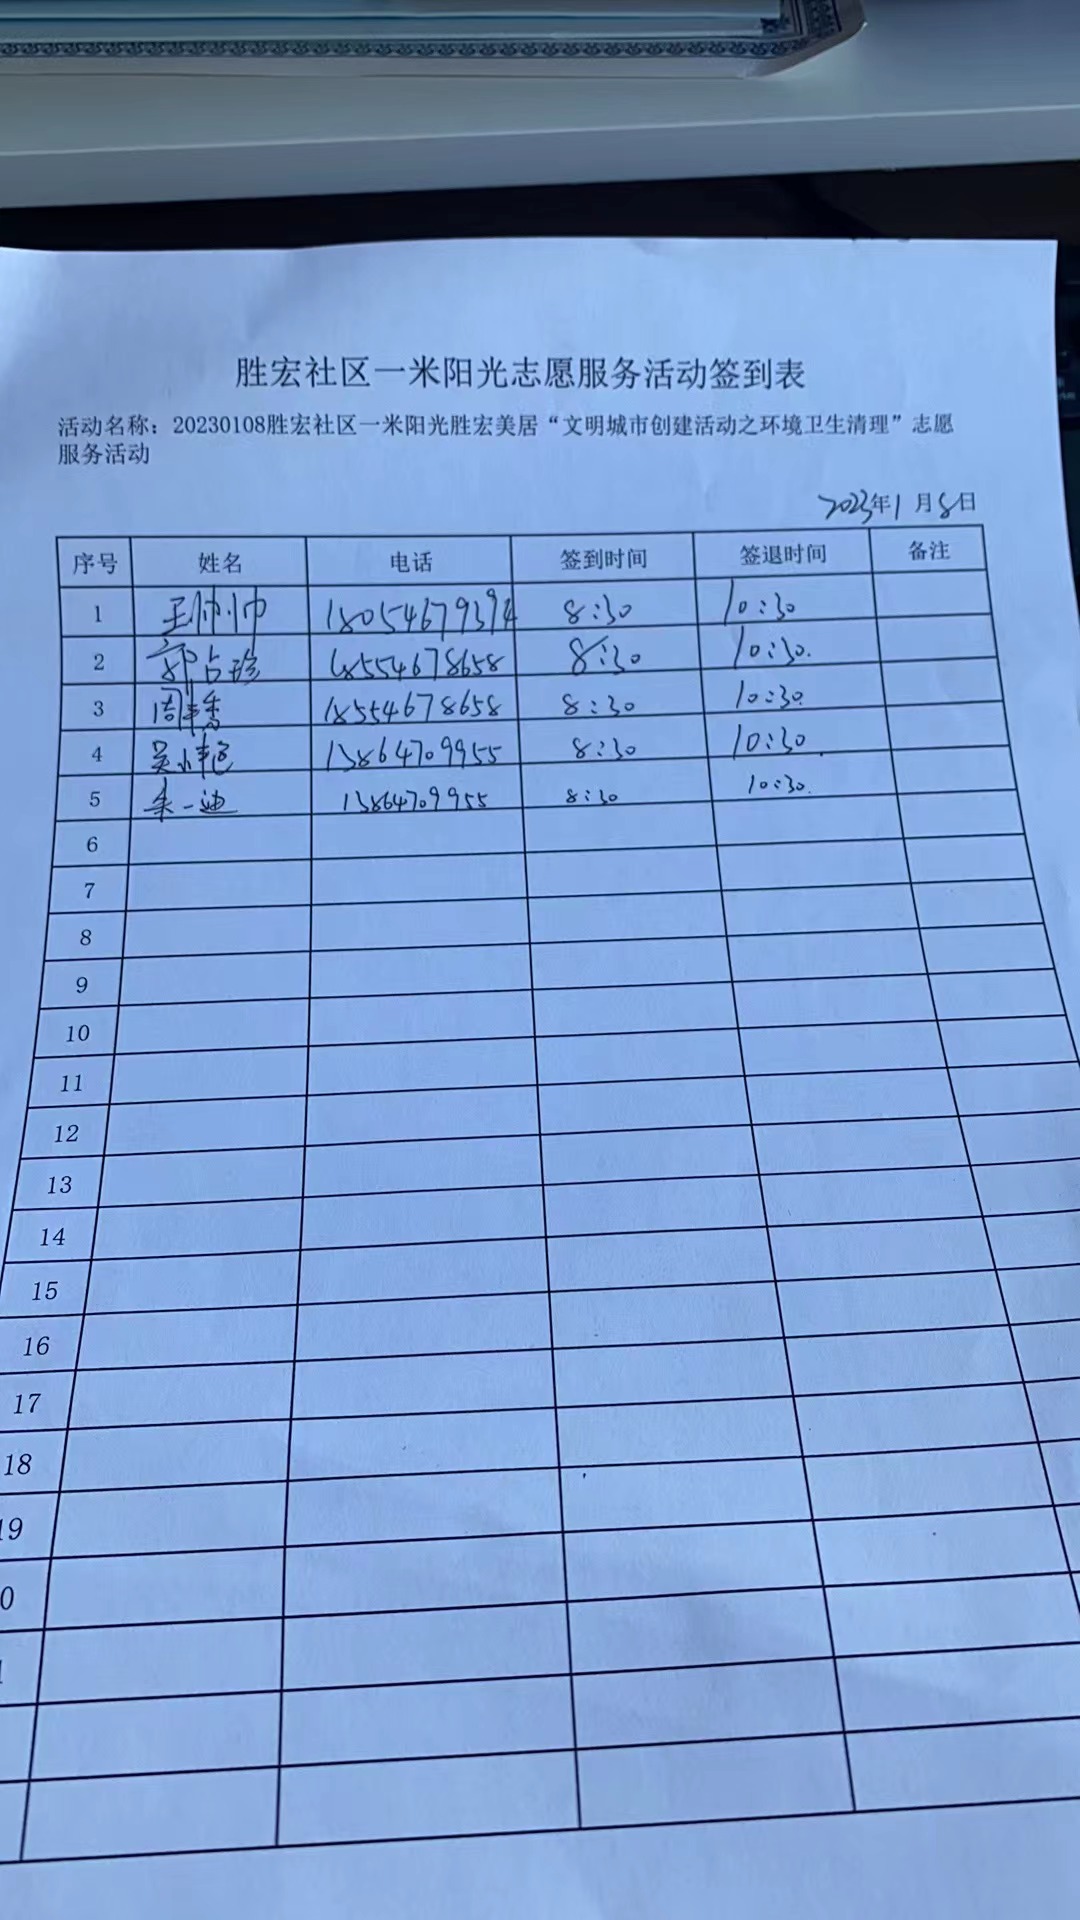 胜宏社区一米阳光志愿服务活动签到表
活动名称：20230108胜宏社区一米阳光胜宏美居“文明城市创建活动之环境卫生清理”志愿
服务活动
2023年1月8日
序号 姓名 电话 签到时间 签退时间 备注
1 王帅帅 18054679394 8:30 10:30
2 郭占珍 18554678658 8:30 10:30.
3 周 香 18554678658 8:30 10:30.
4 吴小艳 13864709955 8:30 10:30.
5 一迪 13864709955 8:30 10:30.
6
7
8
9
10
11
12
13
14
15
16
17
18
19
0